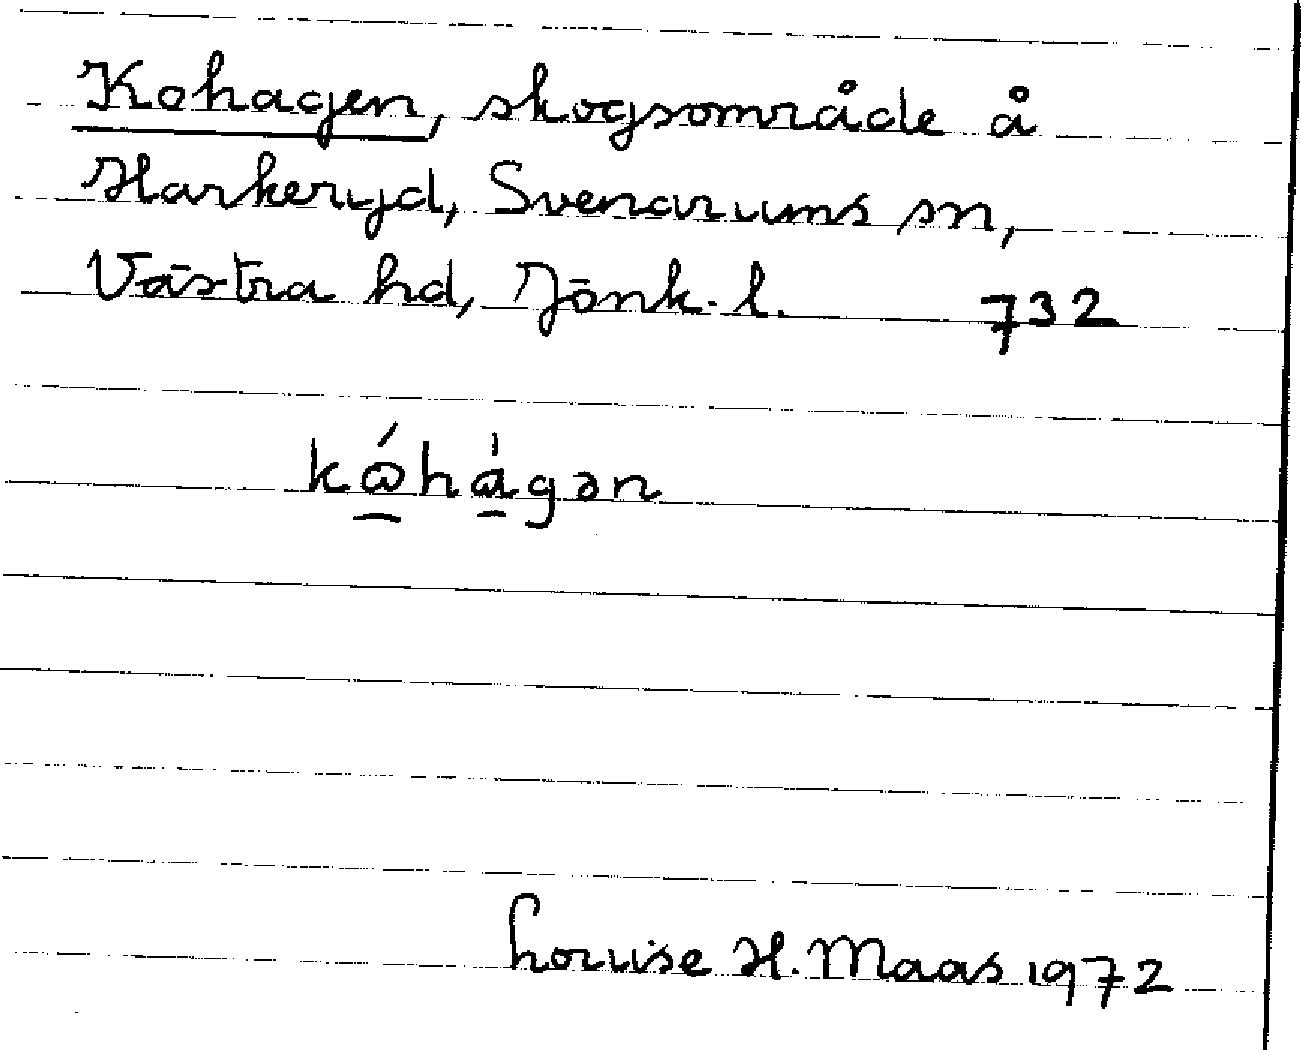 Kohagen, skogsområde å
Harkeryd, Svenarums sn,
Västra hd, Jönk. l. 732
kɷ́hàgən
Louise H. Maas 1972